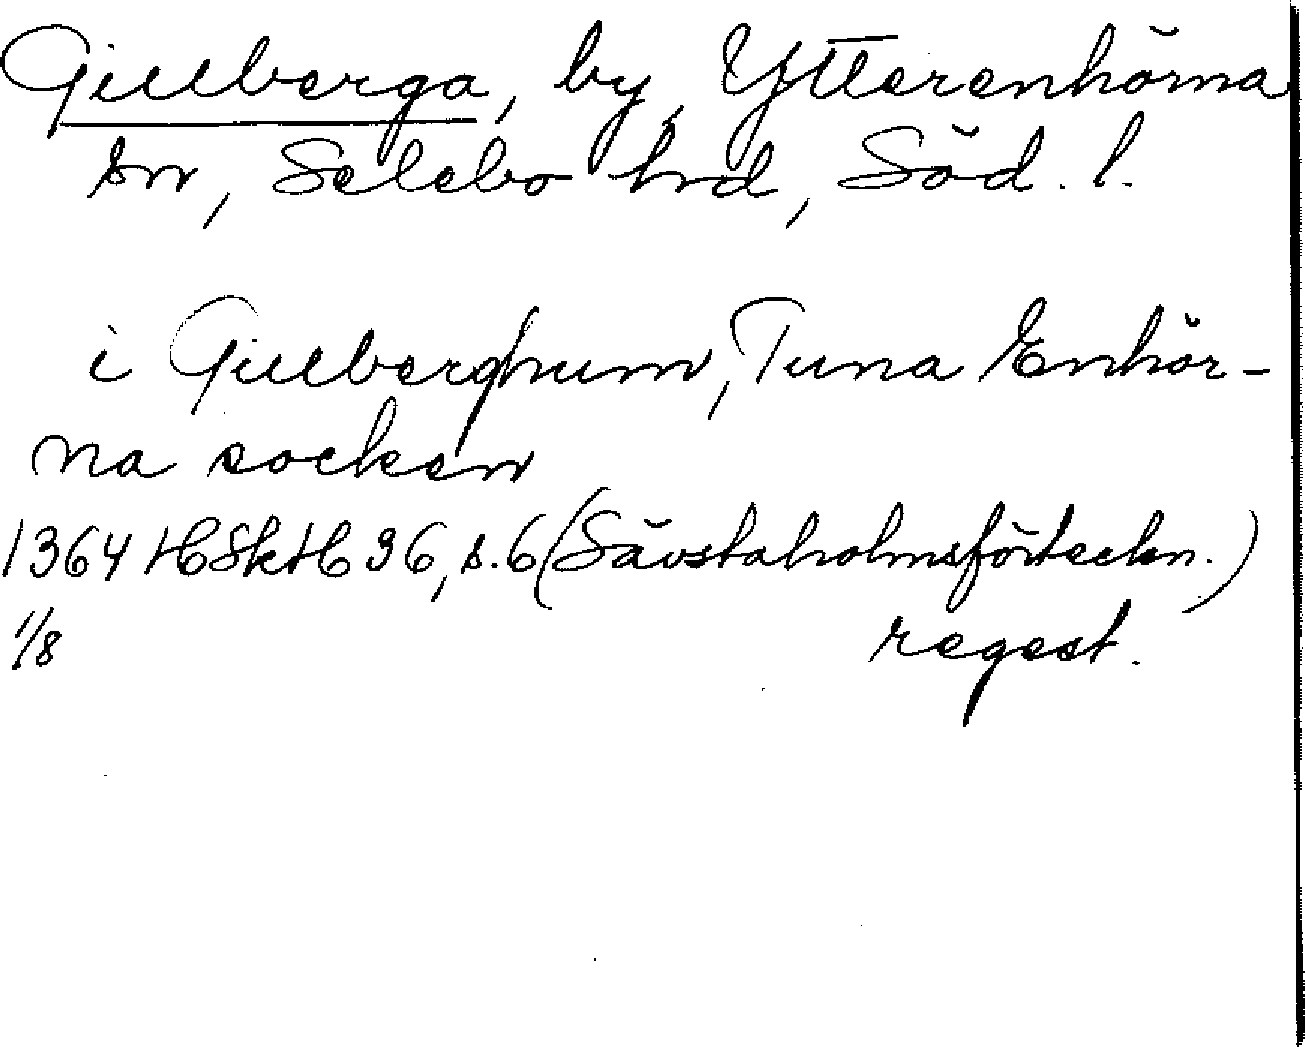 Gillberga, by, Ytterenhörna
sn, Selebo hrd, Söd. l.
i Gillberghum, Tuna Enhör-
na socken
1364 HSkH 36, s.6 (Sävstaholmsförteckn.)
1/8 regest.